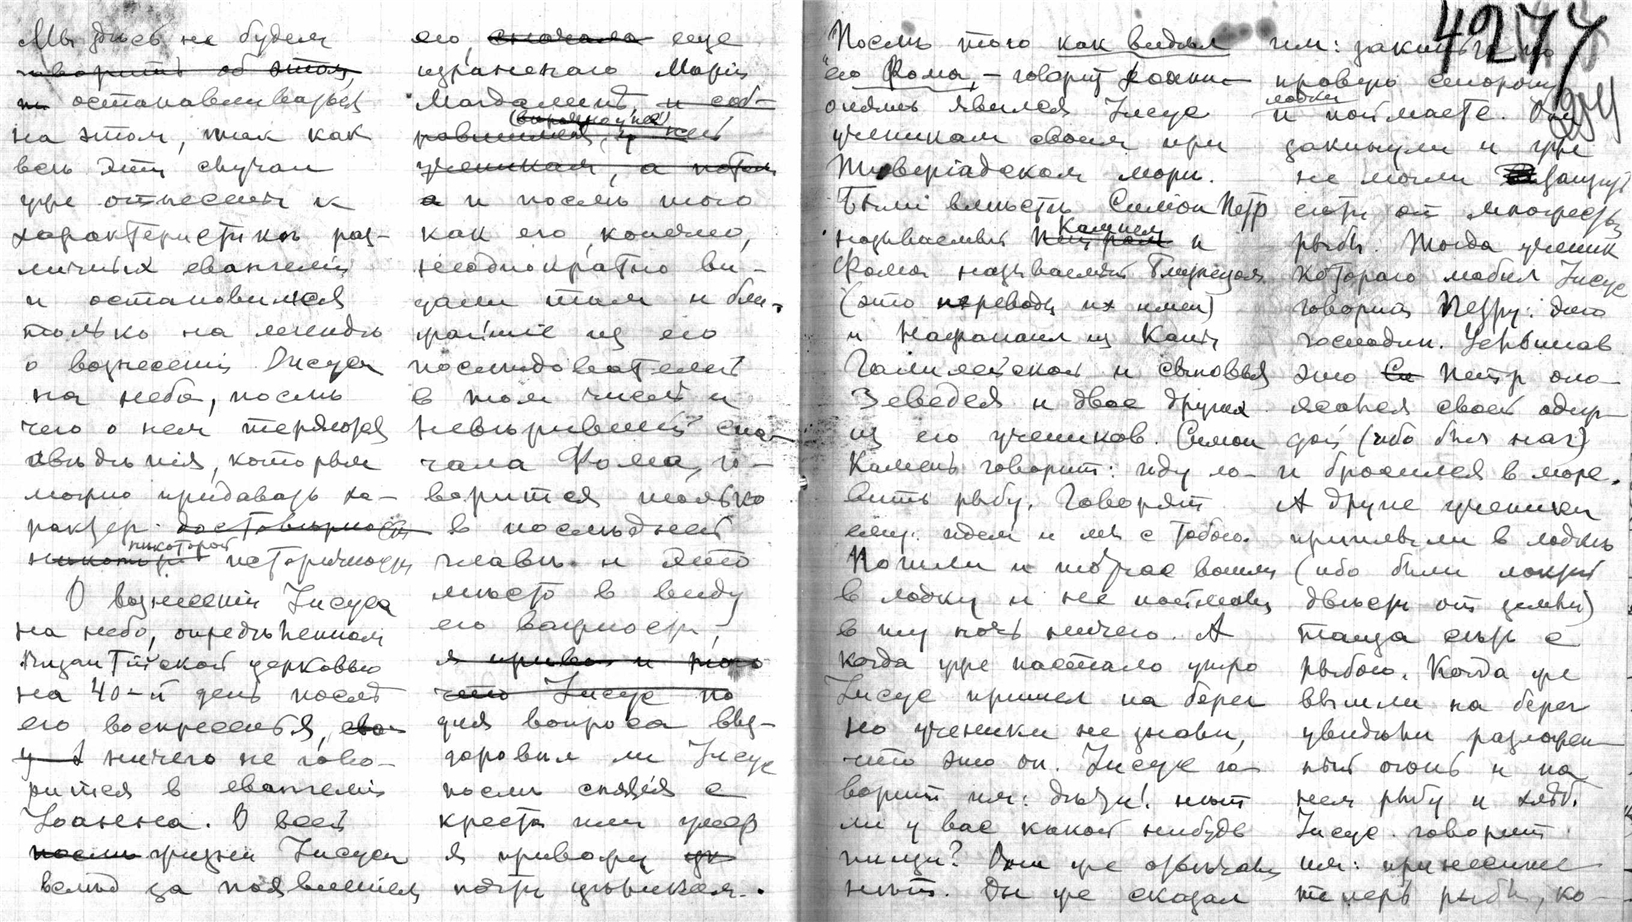 Мы здесь не будем
говорить об этом,
останавливаться
на этом, так как
весь этот случай
уже отнесен к
характеристикам раз-
личных евангелий
и остановимся
только на легенде
о вознесении Иисуса
на небо, после
чего о нем теряются
сведения, которым
можно придавать ха-
рактер достоверности
некоторой историчности
О вознесеніи Іисуса
на небо, определенном
Византійской церковью
на 40-й день после
его воскресенья,
ничего не гово-
рится в евангеліи
Іоанна. О всей
после жизни Іисуса
вслед за появлением
его, сначала еще
израненаго Маріи
Магдалине, и
ученикам, а потом
а и после того
как его, конечно,
неоднократно ви-
дали там и бли-
жайшіе из его
последователей
в том числе и
неверившій сна-
чала Фома, го-
ворится только
в последней
главе. и это
место в виду
его важности,
я привожу и
Іисус по
для вопроса выз-
доровел ли Іисус
после снятія с
креста или умер
я привожу
почти целиком.
4277
294
После того как видел
его Фома, – говорит
опять явился Іисус
ученикам своим при
Тивериадском море.
Были вместе Симон Петр
называемый Камнем и
Фома называемый Близнецом
(это переводы их имен)
и Нафанаил из Каны
Галилейской и сыновья
Зеведея и двое других
из его учеников. Симон
Камень говорит: иду ло-
вить рыбу. Говорят
ему: идем и мы с тобою.
Пошли и тотчас вошли
в лодку и не поймали
в ту ночь ничего. А
когда уже настало утро
Іисус пришел на берег
но ученики не знали,
что это он. Іисус го-
ворит им: дети! нет
ли у вас какой нибудь
пищи? Они же отвечали
нет. Он же сказал
им: закиньте по
правую сторону
лодки
и поймаете. Они
закинули и уже
не могли вытащить
сети от множества
рыбы. Тогда ученик
котораго любил Іисус
говорит Петру: это
господин. Услышав
это Петр опо-
ясался своей одеж-
дой (ибо был наг)
и бросился в море.
А другие ученики
приплыли в лодке
(ибо были локтей
двести от земли)
таща сеть с
рыбою. Когда же
вышли на берег
увидели разложен-
ный огонь и на
нем рыбу и хлеб.
Іисус говорит
им: принесите
теперь рыбы, ко-